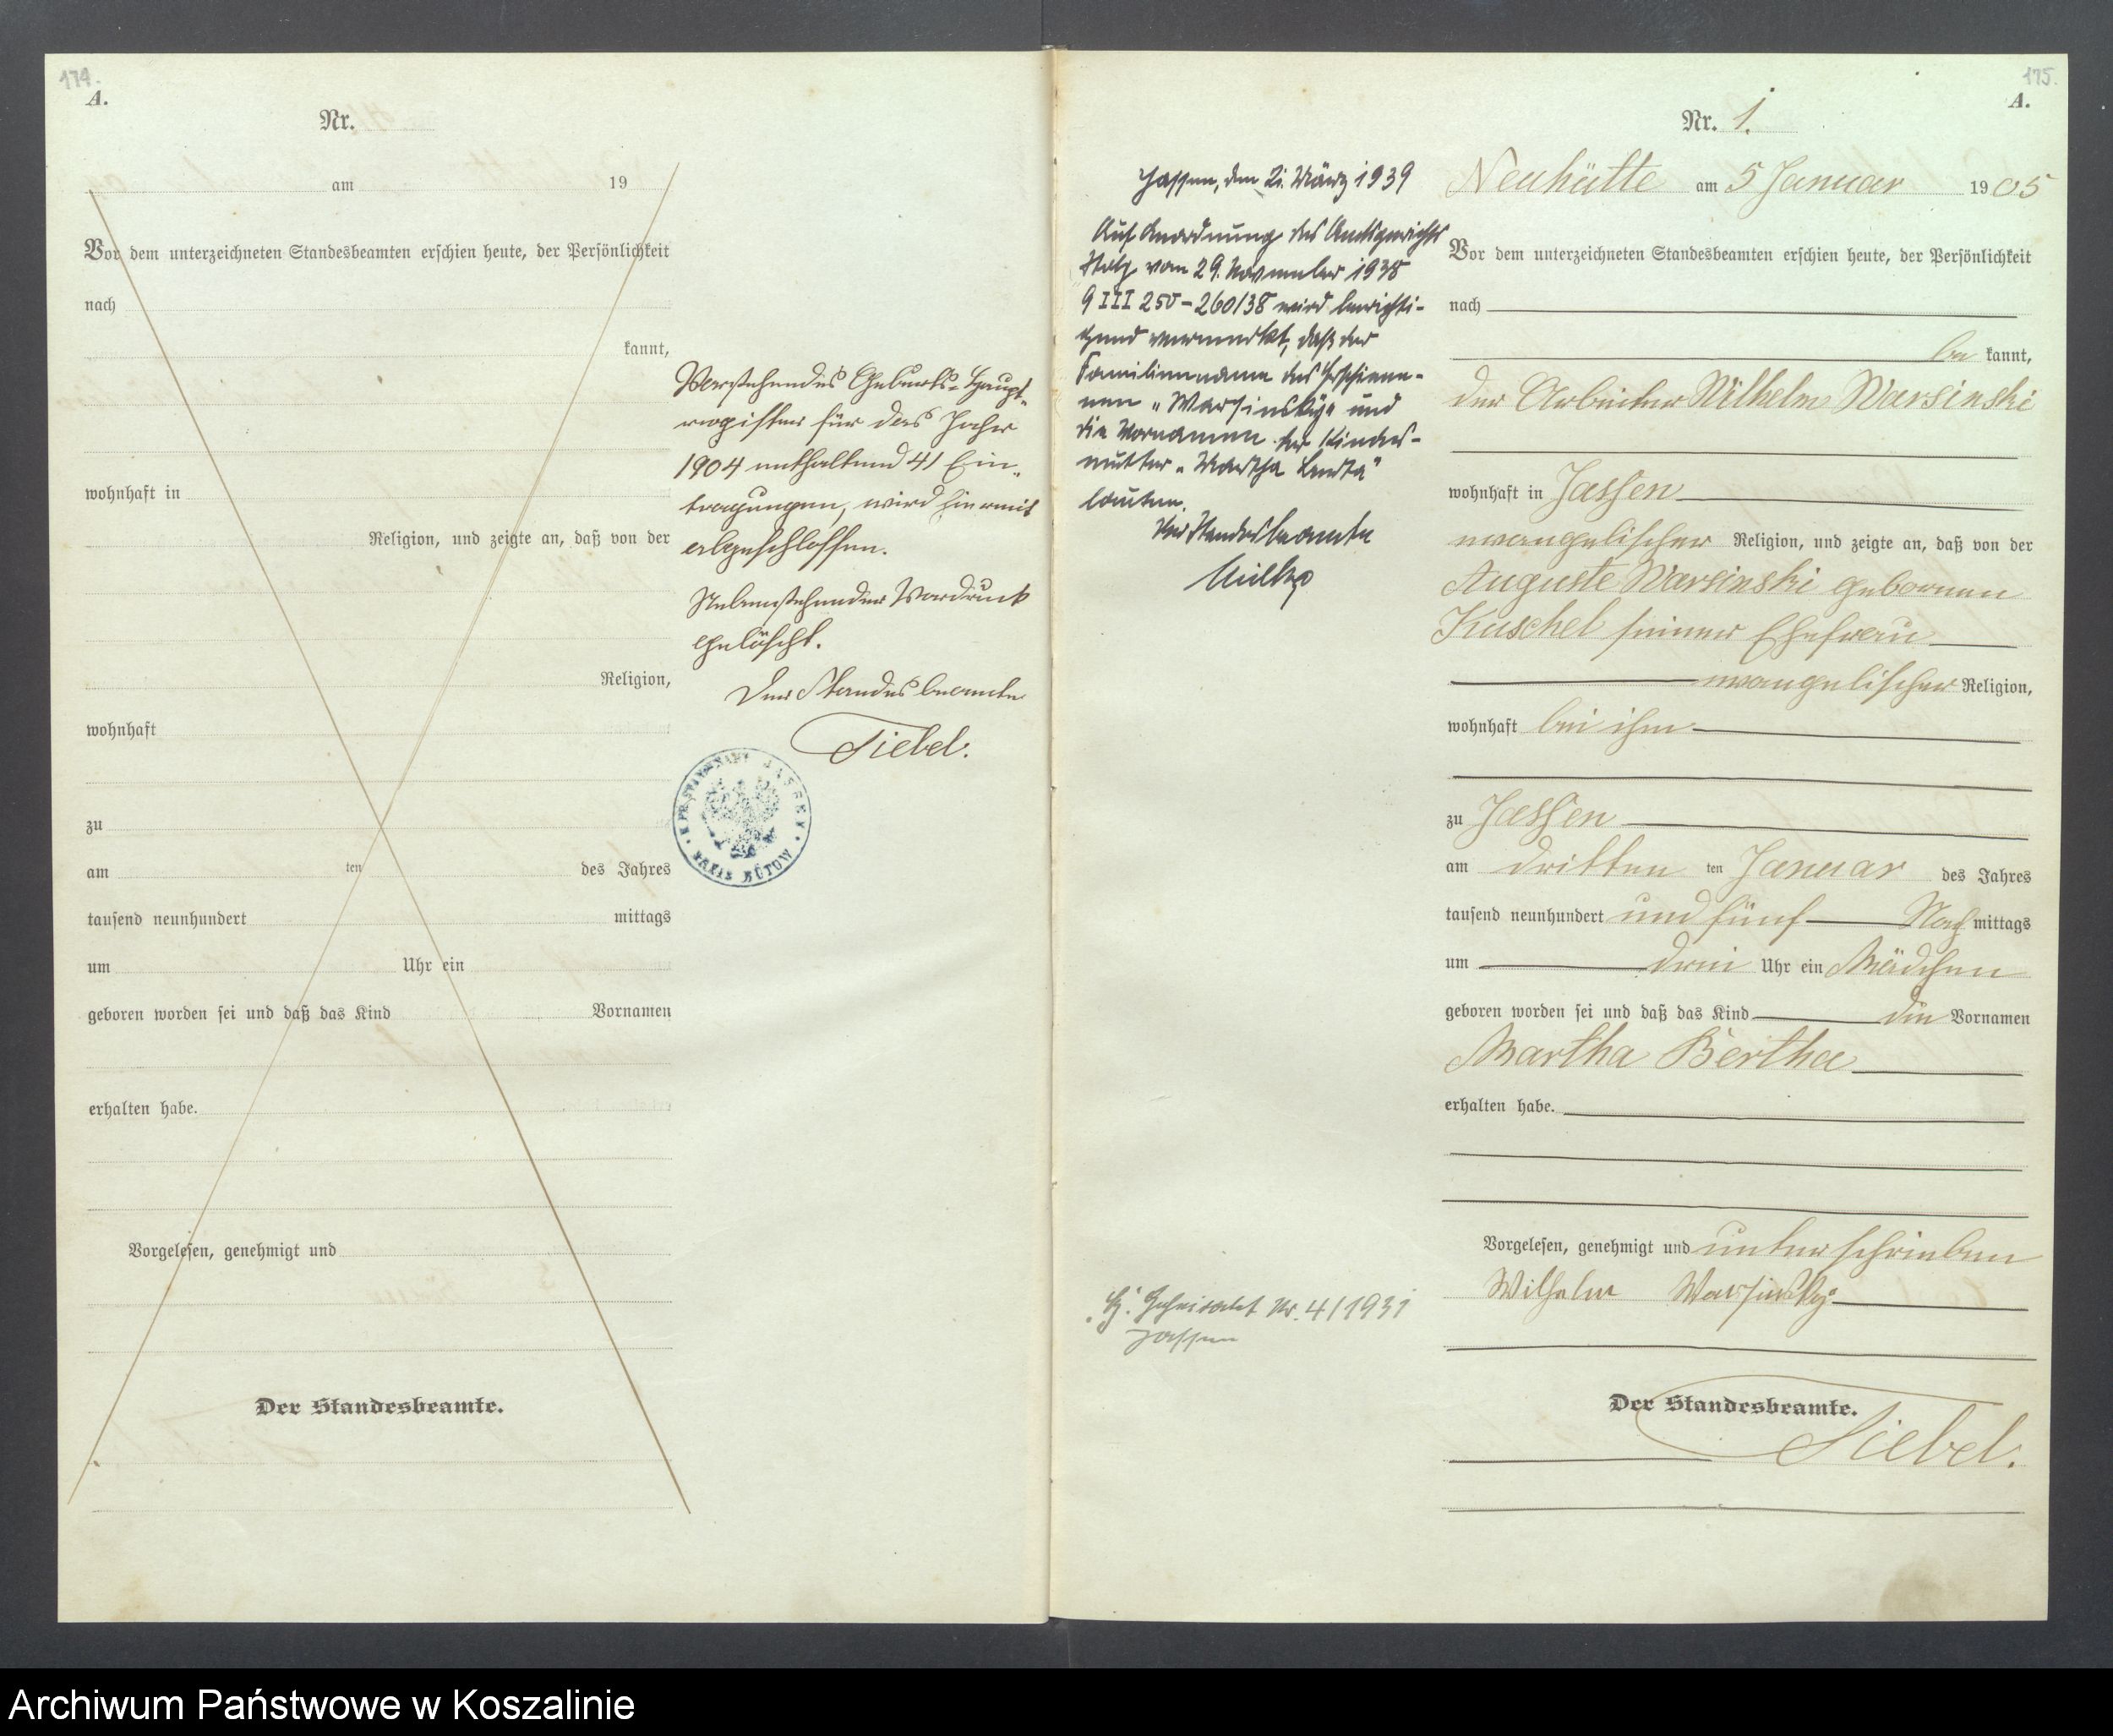 174.
A.
Nr.
am 19
Vor dem unterzeichneten Standesbeamten erschien heute, der Persönlichkeit
nach
kannt,
wohnhaft in
Religion, und zeigte an, daß von der
Religion,
wohnhaft
zu
am ten des Jahres
tausend neunhundert mittags
um Uhr ein
geboren worden sei und daß das Kind Vornamen
erhalten habe.
Vorgelesen, genehmigt und
Der Standesbeamte.
Vorstehendes Geburts-Haupt-
register für das Jahr
1904 enthaltend 41 Ein-
tragungen, wird hiermit
abgeschlossen.
Nebenstehender Vordruck
gelöscht.
Der Standesbeamte
Tiebel.
K. PR. STANDESAMT JASSEN
KREIS BÜTOW
175.
A.
Nr. 1.
Jassen, den 2. März 1939
Auf Anordnung des Amtsgerichts
Stolp vom 29. November 1938
9 III 250-260/38 wird berichti-
gend vermerkt, daß der
Familienname des Erschiene-
nen „Warsinsky" und
die Vornamen der Kindes-
mutter „Martha "
lauten.
Der Standesbeamte
Neuhütte am 5 Januar 1905
Vor dem unterzeichneten Standesbeamten erschien heute, der Persönlichkeit
nach
be kannt,
der Arbeiter Wilhelm Warsinski
wohnhaft in Jassen
evangelischer Religion, und zeigte an, daß von der
Auguste Warsinski geborenen
Kuschel seiner Ehefrau
evangelischer Religion,
wohnhaft bei ihm
zu Jassen
am dritten ten Januar des Jahres
tausend neunhundert und fünf Nach mittags
um drei Uhr ein Mädchen
geboren worden sei und daß das Kind die Vornamen
Martha Bertha
erhalten habe.
Vorgelesen, genehmigt und unterschrieben
Wilhelm Warsinsky
Nr. 4/1931
Jassen
Der Standesbeamte.
Tiebel.
Archiwum Państwowe w Koszalinie